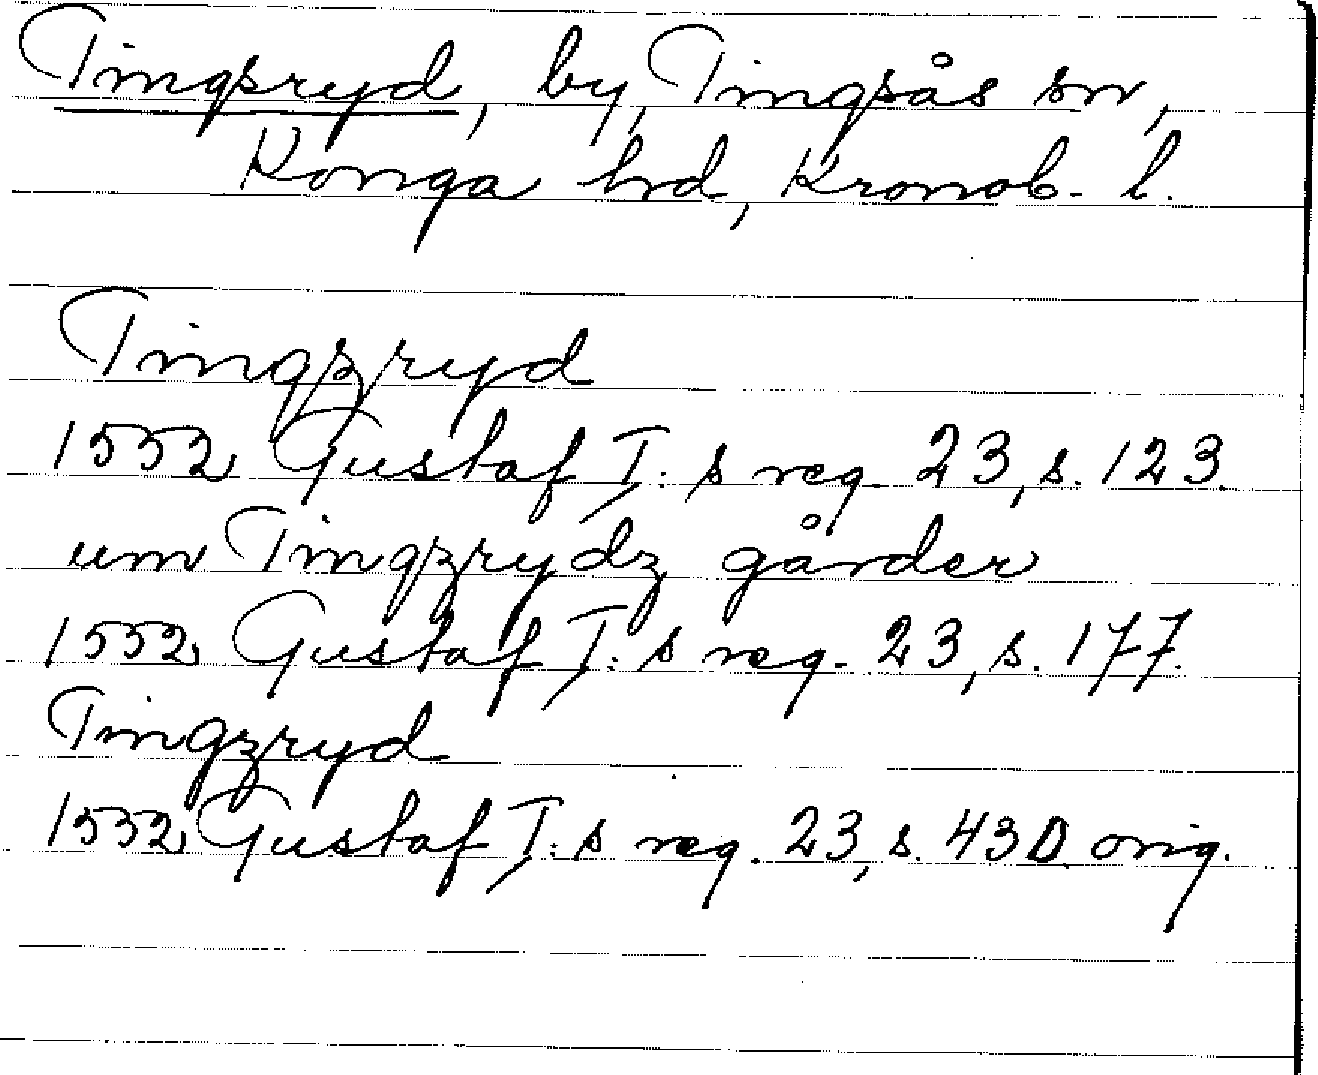 Tingsryd, by, Tingsås sn,
Konga hd, Kronob. l.
Tingzryd
1552 Gustaf I:s reg. 23, s. 123.
um Tingzrydz gårder
1552 Gustaf I:s reg. 23, s. 177.
Tingzryd
1552 Gustaf I:s reg. 23, s. 430. orig.